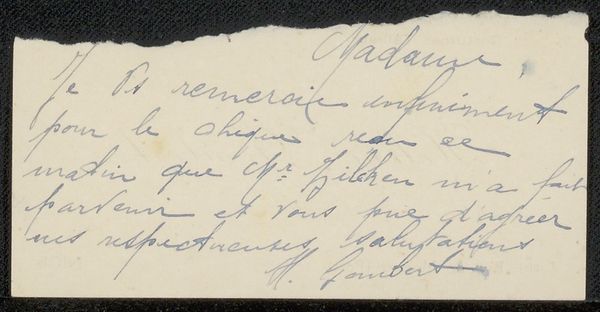 Madame,
Je Vs remercie infiniment
pour le chèque reçu ce
matin que Mr Zilcken m'a fait
parvenir et vous prie d'agréer
mes respectueuses salutations
H. Gombert